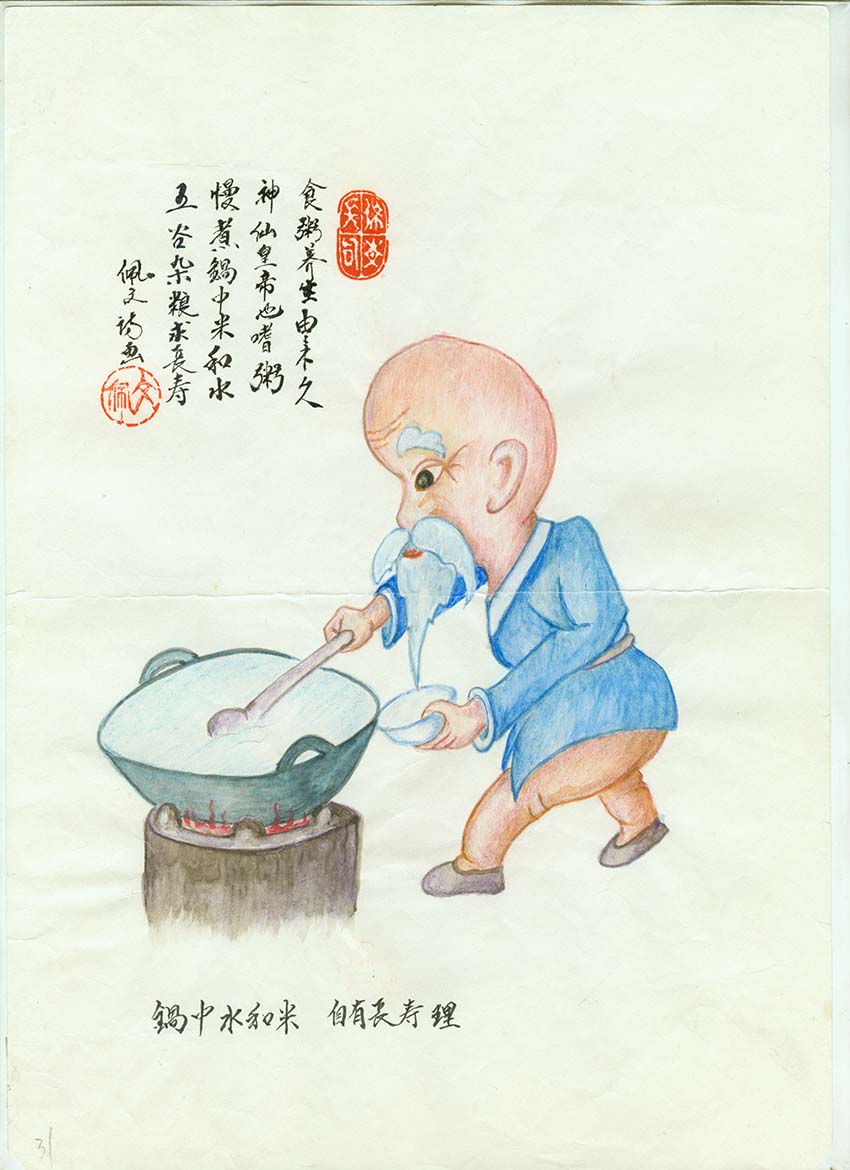 食粥养生由来久
神仙皇帝也嗜粥
慢煮鍋中米和水
五谷杂粮求長寿
佩文诗画
文佩
鍋中水和米 自有長寿理
31